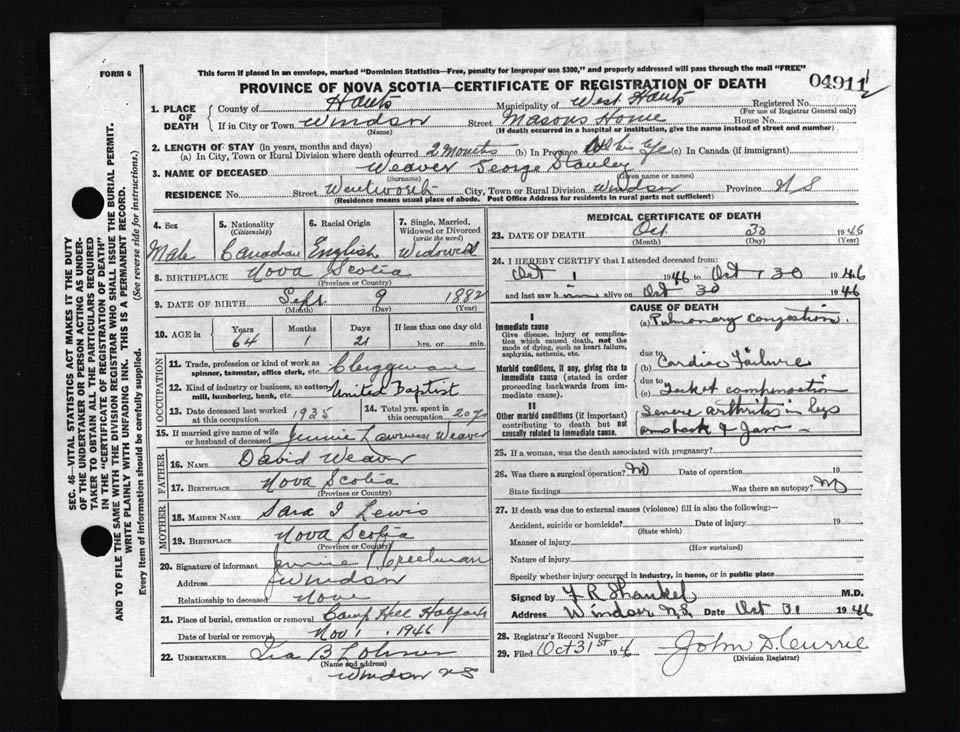 FORM 6
This form if placed in an envelope, marked "Dominion Statistics—Free, penalty for improper use $300," and properly addressed will pass through the mail "FREE"
PROVINCE OF NOVA SCOTIA—CERTIFICATE OF REGISTRATION OF DEATH
04911½
SEC. 46—VITAL STATISTICS ACT MAKES IT THE DUTY
OF THE UNDERTAKER OR PERSON ACTING AS UNDER-
TAKER TO OBTAIN ALL THE PARTICULARS REQUIRED
IN THE "CERTIFICATE OF REGISTRATION OF DEATH"
AND TO FILE THE SAME WITH THE DIVISION REGISTRAR WHO SHALL ISSUE THE BURIAL PERMIT.
WRITE PLAINLY WITH UNFADING INK. THIS IS A PERMANENT RECORD.
Every item of information should be carefully supplied. (See reverse side for instructions.)
1. PLACE OF DEATH County of Hants Municipality of West Hants Registered No.
(For use of Registrar General only)
If in City or Town Windsor Street Masons Home House No.
(Name) (If death occurred in a hospital or institution, give the name instead of street and number)
2. LENGTH OF STAY (in years, months and days)
(a) In City, Town or Rural Division where death occurred 2 Months (b) In Province All his life (c) In Canada (if immigrant)
3. NAME OF DECEASED Weaver George Stanley
(Surname) (Given name or names)
RESIDENCE No. Street Wentworth City, Town or Rural Division Windsor Province N S
(Residence means usual place of abode. Post Office Address for residents in rural parts not sufficient)
4. Sex 5. Nationality (Citizenship) 6. Racial Origin 7. Single, Married, Widowed or Divorced (write the word)
Male Canadian English Widowed
8. BIRTHPLACE Nova Scotia
(Province or Country)
9. DATE OF BIRTH Sept. 9 1882
(Month) (Day) (Year)
10. AGE in Years Months Days If less than one day old
64 1 21 hrs. or min.
OCCUPATION
11. Trade, profession or kind of work as spinner, teamster, office clerk, etc. Clergyman
12. Kind of industry or business, as cotton mill, lumbering, bank, etc. United Baptist
13. Date deceased last worked at this occupation 1935 14. Total yrs. spent in this occupation 20 yrs
15. If married give name of wife or husband of deceased Jennie Lawrence Weaver
FATHER
16. NAME David Weaver
17. BIRTHPLACE Nova Scotia
(Province or Country)
MOTHER
18. MAIDEN NAME Sara I Lewis
19. BIRTHPLACE Nova Scotia
(Province or Country)
20. Signature of informant Jennie Creelman
Address Windsor
Relationship to deceased None
21. Place of burial, cremation or removal Camp Hill Halifax
Date of burial or removal Nov 1. 1946
22. UNDERTAKER Ira B Lohnes
(Name and address)
Windsor NS
MEDICAL CERTIFICATE OF DEATH
23. DATE OF DEATH Oct 30 1946
(Month) (Day) (Year)
24. I HEREBY CERTIFY that I attended deceased from:
Oct 1 1946 to Oct 30 1946
and last saw him alive on Oct 30 1946
CAUSE OF DEATH
I
Immediate cause
Give disease, injury or complica-
tion which caused death, not the
mode of dying, such as heart failure,
asphyxia, asthenia, etc.
(a) Pulmonary Congestion.
due to
Morbid conditions, if any, giving rise to
immediate cause (stated in order
proceeding backwards from im-
mediate cause).
(b) Cardiac Failure
due to
(c) Lack of compensation
II
Other morbid conditions (if important)
contributing to death but not
causally related to immediate cause.
Severe arthritis in legs
arms back & Jaw
25. If a woman, was the death associated with pregnancy?
26. Was there a surgical operation? No Date of operation 19
State findings Was there an autopsy? No
27. If death was due to external causes (violence) fill in also the following:—
Accident, suicide or homicide? Date of injury 19
(State which)
Manner of injury
(How sustained)
Nature of injury
Specify whether injury occurred in industry, in home, or in public place
Signed by R Shankel M.D.
Address Windsor N.S. Date Oct 31 1946
28. Registrar's Record Number
29. Filed Oct 31st 1946 John D. Currie
(Division Registrar)